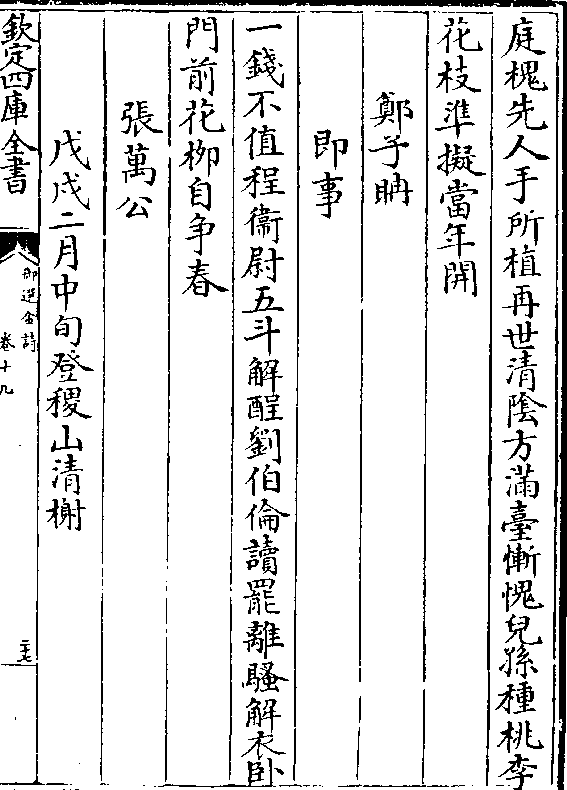 庭槐先人手所植再世清隂方滿臺慚愧兒孫種桃李
花枝準擬當年開
鄭子聃
即事
一錢不值程衞尉五斗解酲劉伯倫讀罷離騷解衣卧
門前花栁自争春
張萬公
戊戌二月中旬登稷山清榭
欽定四庫全書
御選金詩
卷十九
二十七